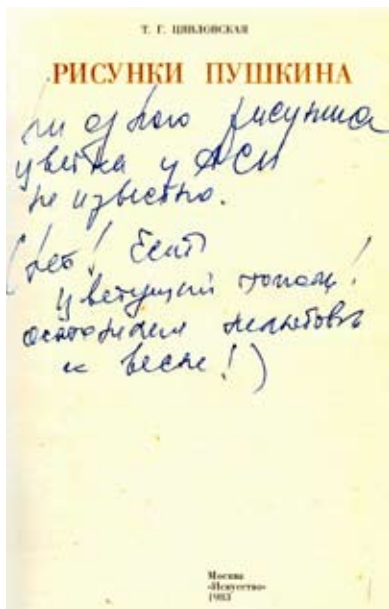 Т. Г. ЦЯВЛОВСКАЯ
РИСУНКИ ПУШКИНА
ни одного рисунка
цветка у АСП
не известно.
(нет! Есть
цветущий тополь!
и весне!)
Москва
«Искусство»
1983